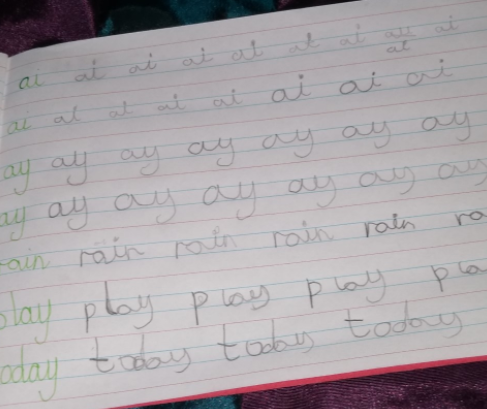 ai ai ai ai ai ai ai ai ai
ai
ai ai ai ai ai ai ai ai
ay ay ay ay ay ay ay
ay ay ay ay ay ay ay
rain rain rain rain rain ra
play play play play pla
oday today today today